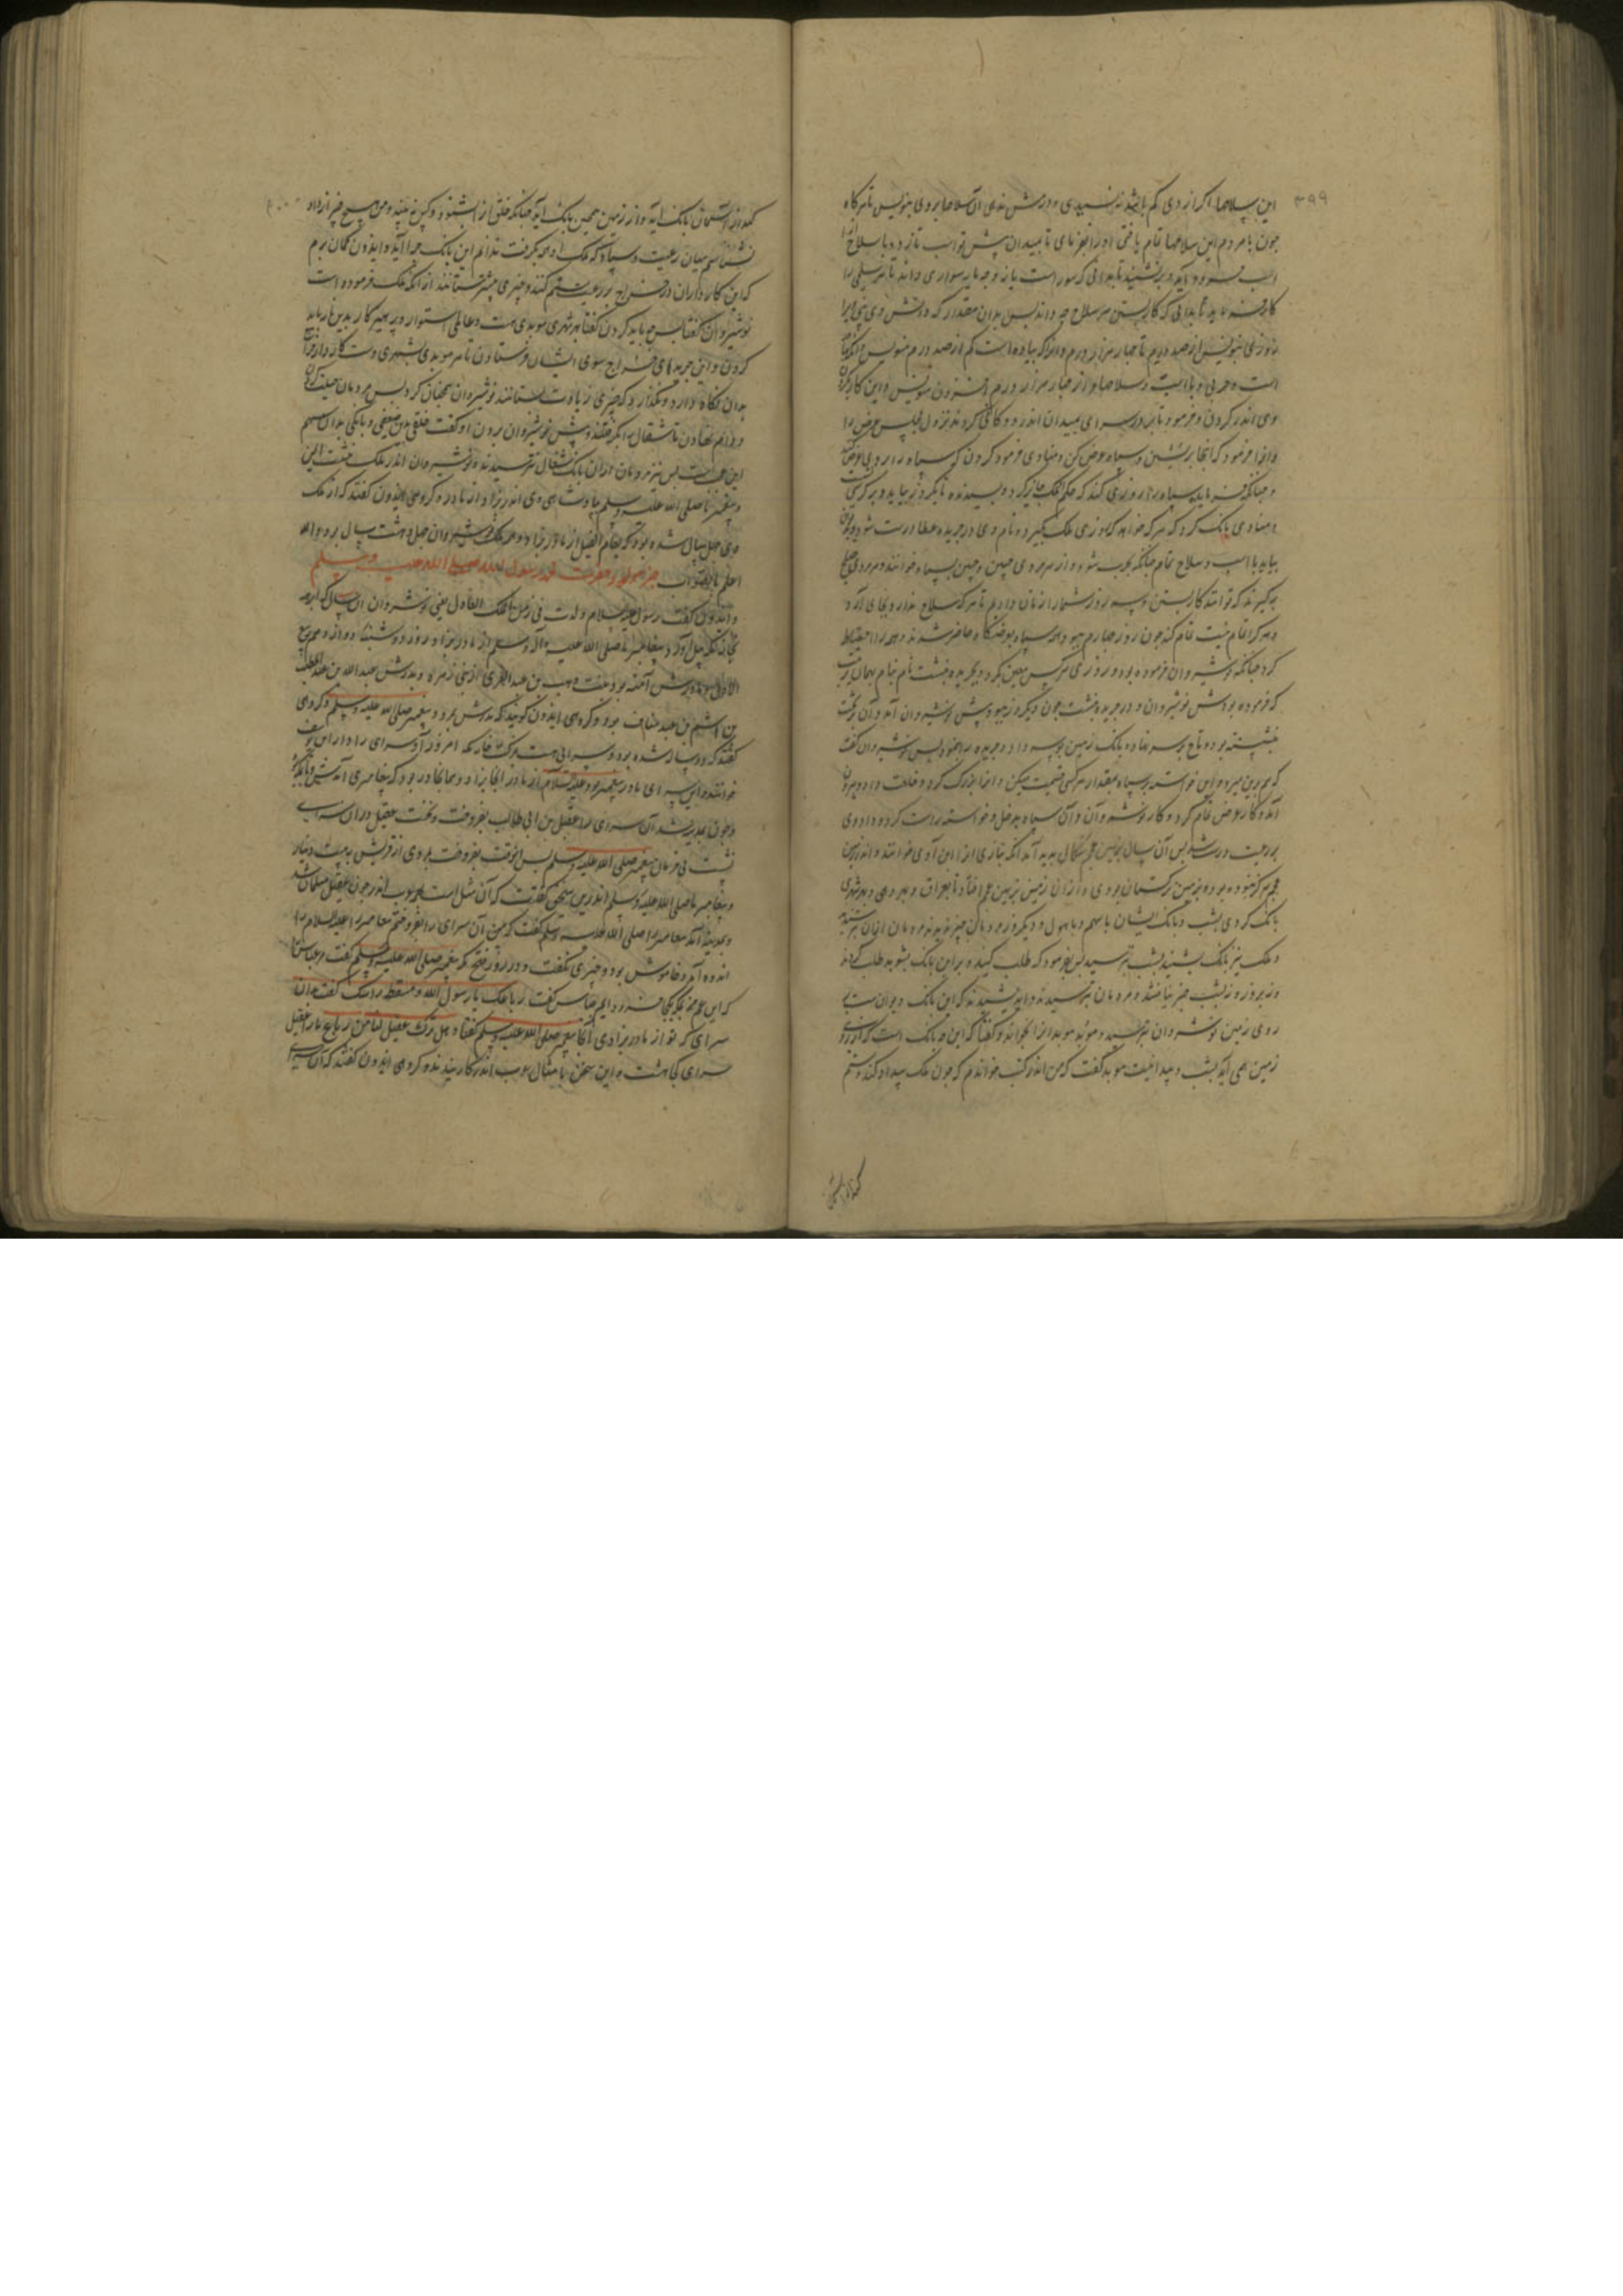 ۳۹۹
این سلاحها اگر از وی کم باشد نپسندی و درمش ندهی آن سلاحها بر وی بنویس تا هرگاه
چون با مردم این سلاحها تمام یافتی او را بفرمای تا بمیدان پیش تو اسب تازد و با سلاح
اسب فرود آید و برنشیند تا بدانی که سوار است یا نه و چه مایه سواری داند تا هر سلحی را
کار فرماید تا بدانی که کار بستن هر سلاح چه داند پس بدان مقدار که دانش وی بینی ویرا
روزی بنویس از صد درم تا چهار هزار درم و آنرا که پیاده است کم از صد درم منویس و آنکه
است و حربی و با اسب و سلاحها از چهار هزار درم افزون منویس و این کار
وی اندر کردن و فرمود تا بر در سرای بمیدان اندر دوکانی کردند پس عرض را
و او را فرمود که آنجا بنشین و سپاه عرض کن و منادی فرمود کردن که سپاه را
و چنانکه فرماید سپاه را روزی کند که حکم ملک جایز کرد و بپسندد تا دیگر روز بیاید و بر کرسی
و منادی بانگ کرد که هر که خواهد که روزی ملک بگیرد و نام وی در جریده عطا درست شود
بیاید با اسب و سلاح تمام چنانکه بحرب شود و از هر مردی چنین و چنین سپاه خوانند و هر مردی
برگیرند که تواند کار بستن و سه روز شمار از زمان دادم تا هر که سلاح ندارد بجای آرد
و هر که را تمام نیست تمام کند چون روز چهارم ببود همه سپاه بعرضگاه حاضر شدند و همه را احتیاط
کرد چنانکه نوشیروان فرموده بود و روزی هر کس معین کرد و بجریده نبشت نام بنام بهمان ترتیب
که فرموده بودش نوشیروان و در جریده نبشت چون دیگر روز ببود پیش نوشیروان آمد و آن بر تخت
نشسته بود و تاج بر سر نهاده بابک زمین بوسه داد و جریده را بنمود پس نوشیروان گفت
که هم برین میرو و این خواسته بر سپاه بمقدار هر کسی قسمت میکن و او را بزرگ کرد و خلعت داد و بیرون
آمد و کار عرض تمام کرد و کار نوشیروان و آن سپاه بدخل و خواسته راست کرد و داد وی
بر رعیت درست شد پس آن سال بزمین عجم شگال پدید آمد آنکه بتازی او را ابن آوی خوانند و اندر زمین
عجم هرگز نبوده بود و بزمین ترکستان بودی و از آن زمین بزمین عجم افتاد تا بعراق و بهر دهی و بهر شهری
بانگ کردی بشب و بانگ ایشان با سهم و با هول و دیگر روز مردمان چیز ندیدند مردمان از آن بترسیدند
و ملک نیز بانگ بشنید بشب بترسید پس بفرمود که طلب کنید و بر این بانگ بشوید طلب کردند
و نه بروز و نه بشب چیز نیافتند و مردمان بترسیدند و اندیشیدند که این بانگ دیوان است
روی زمین نوشیروان بترسید و موبد موبدان را بخواند و گفتا که این چه بانگ است که از زیر
زمین همی آید بشب و پیدا نیست موبد گفت که من اندر کتب خواندم که چون ملک بیداد کند و ستم
کند از آسمان بانگ آید و از زمین همچنین بانگ آید چنانکه خلق آنرا بشنود و کس نبیند و من هیچ چیز از داد
نشناسم میان رعیت و سپاه که ملک داد همه بگرفت ندانم این بانگ چرا آید و ایدون گمان برم
که این کارداران در خراج بر رعیت ستم کنند و چیزی بیشتر ستانند از آنکه ملک فرموده است
نوشیروان گفتا پس چه باید کردن گفتا بهر شهری موبدی هست و عالمی استوار و پرهیزکار بدین باید
کردن و این جریدهای خراج سوی ایشان فرستادن تا هر موبدی بشهری دست کاردار
بدان نگاه دارد و نگذارد که چیزی زیادت ستانند نوشیروان همچنان کرد پس مردمان حیلت کردند
و دام نهادن تا شگال را بگرفتند و پیش نوشیروان بردن او گفت خلقی بدین ضعیفی و بانگی بدان سهم
این عجب است پس نیز مردمان از آن بانگ شگال نترسیدند و نوشیروان اندر ملک بنشست
و پیغمبر ما صلی الله علیه وسلم بپادشاهی وی اندر بزاد از مادر و گروهی ایدون گفتند که از ملک
وی چهل سال شده بود که بعام الفیل از مادر بزاد و همه ملک نوشیروان چهل و هشت سال بود والله
اعلم بالصواب خبر مولود حضرت محمد رسول الله صلی الله علیه وسلم
و ایدون گفت رسول علیه السلام ولدت فی زمن الملک العادل یعنی نوشیروان آن سال که ابرهه
بخانه مکه پیل آورد و پیغامبر ما صلی الله علیه و آله وسلم از مادر بزاد روز دوشنبه دوازدهم ربیع
الاول و مادرش آمنه بود بنت وهب بن عبد الدی از بنی زهره و پدرش عبد الله بن عبد المطلب
بن هاشم بن عبد مناف بود و گروهی ایدون گویند که پدرش بمرد و پیغمبر صلی الله علیه وسلم و گروهی
گفتند که دو ساله شده بود و سرایی هست بمکه امروز آن سرای را دار ابن یوسف
خوانند و این سرای مادر پیغمبر بود علیه السلام از مادر آنجا بزاد و همانجا در بود که پیغامبری آمدش
و چون بمدینه شد آن سرای را عقیل بن ابی طالب بفروخت و نخست عقیل در آن سرای
نشست بی فرمان پیغمبر صلی الله علیه وسلم پس آنوقت بفروخت بمردی از قریش به بیست دینار
و پیغامبر ما صلی الله علیه وسلم اندرین سخنی گفت که آن مثل است بعرب اندر چون عقیل مسلمان شد
و بمدینه آمد پیغامبر را صلی الله علیه وسلم گفت که من آن سرای را بفروختم پیغامبر را علیه السلام
اندوه آمد و خاموش بود و چیزی نگفت و در روز فتح مکه پیغمبر صلی الله علیه وسلم گفت مر عباس را
که ای عم مرا بگو کجا فرود آیم عباس گفت رباعک یا رسول الله و مسقط راسک گفت بدان
سرای که تو از مادر بزادی آنجا پیغمبر صلی الله علیه وسلم گفتا و هل ترک عقیل لنا من رباع ما را عقیل
سرای کجا هشت و این سخن بامثال عرب اندر کار بندند و گروهی ایدون گفتند که آن سرای